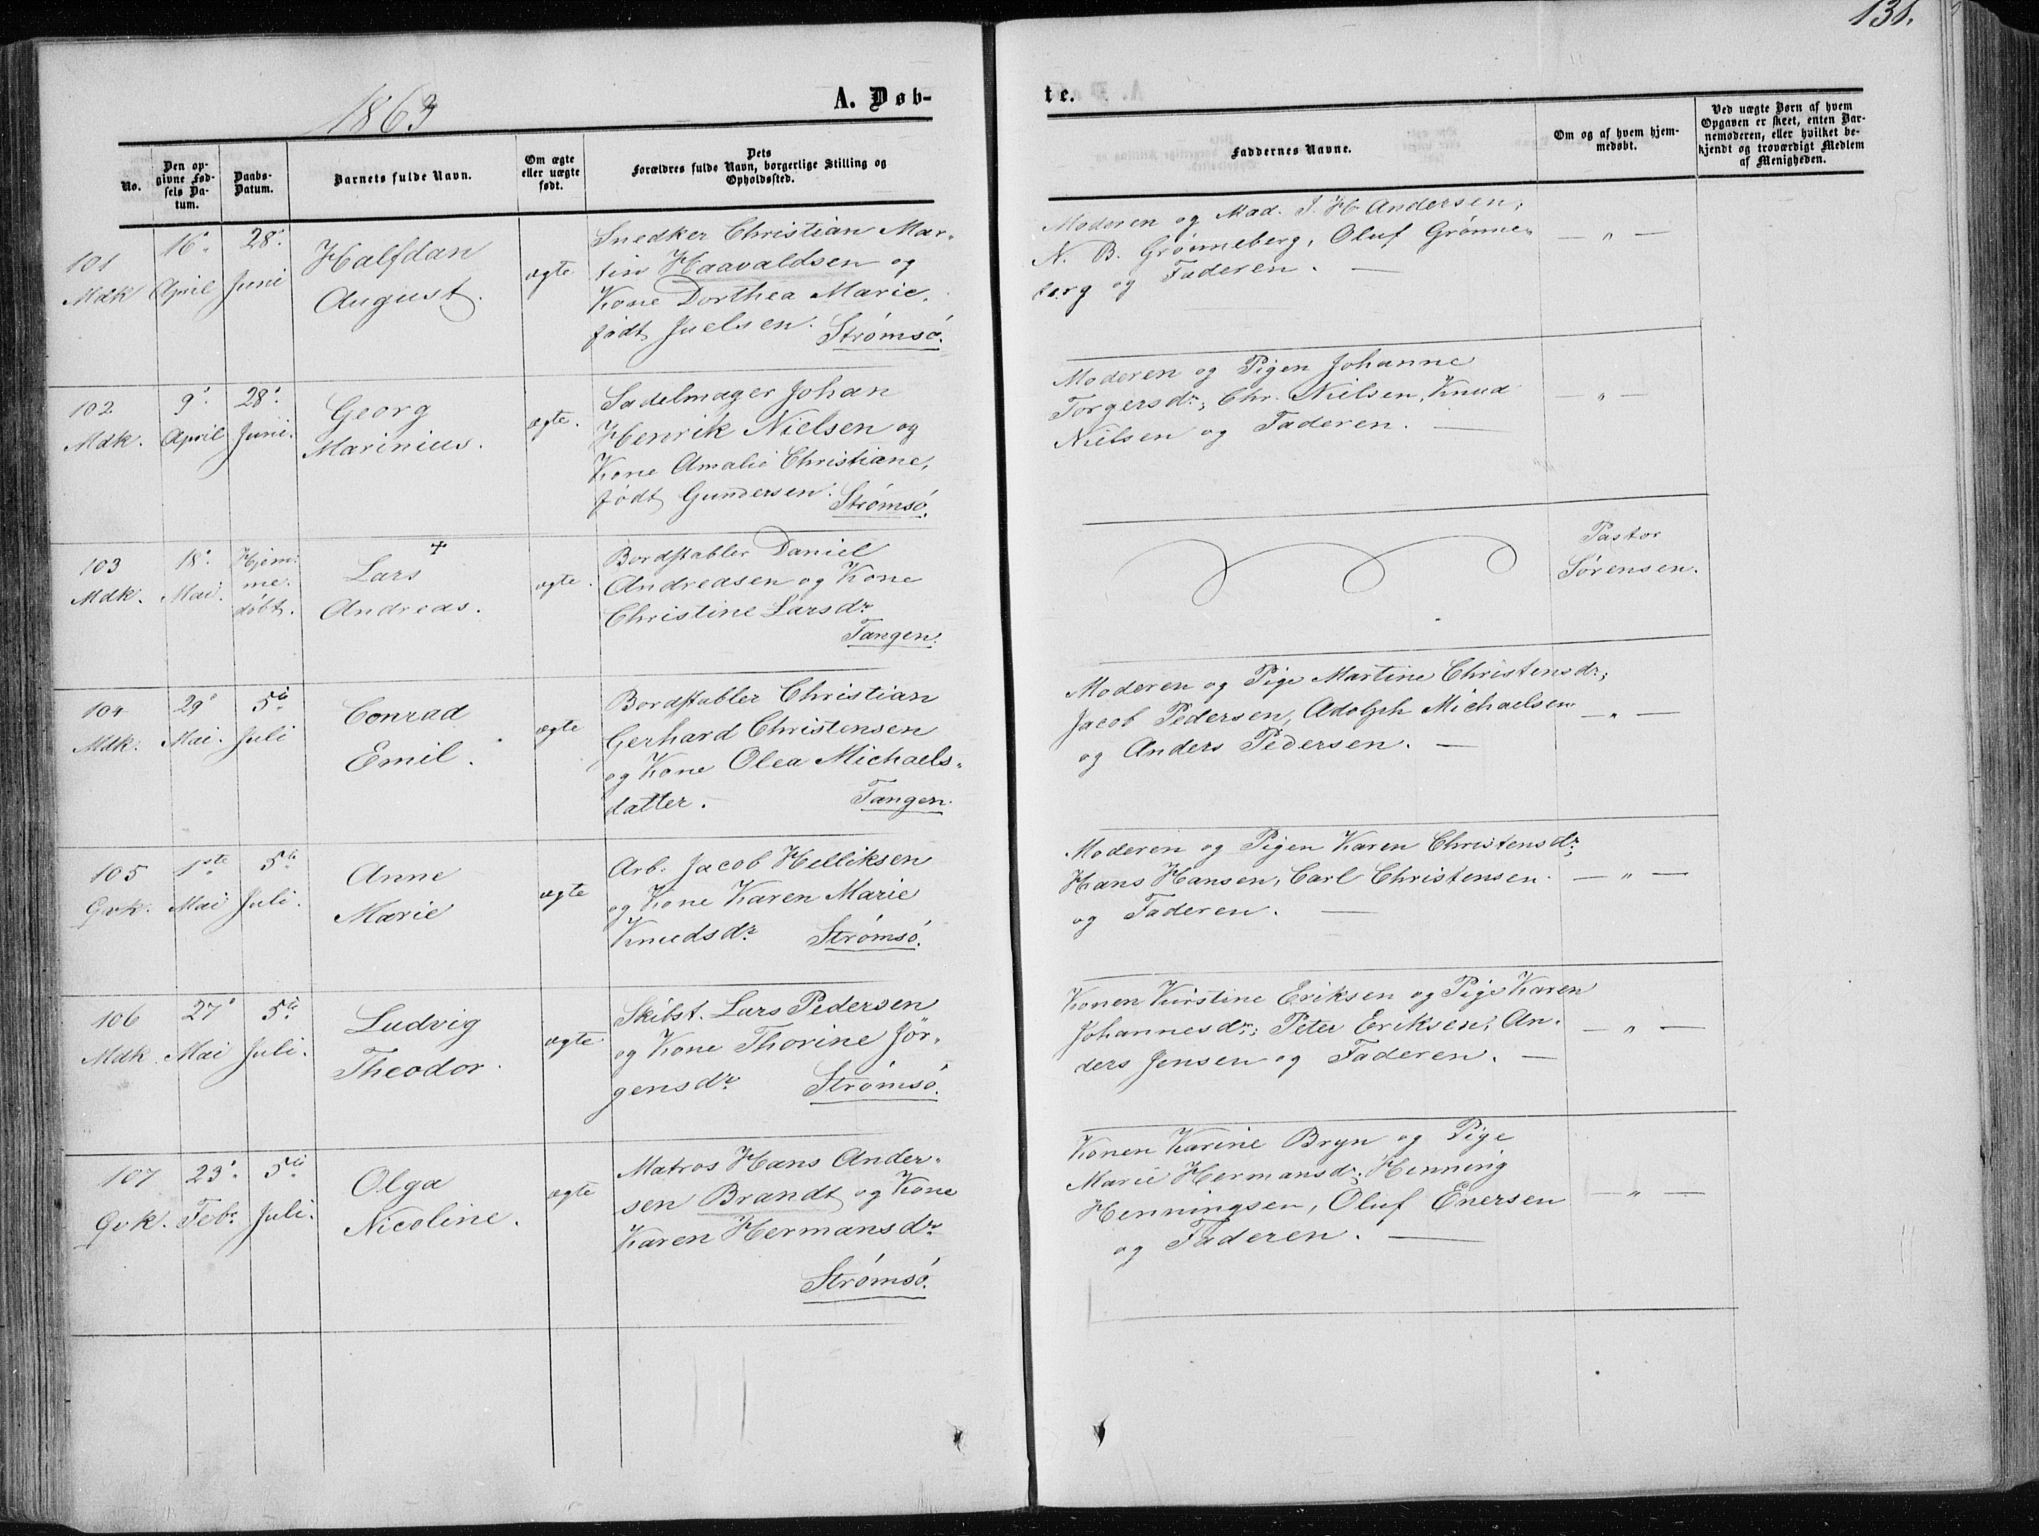 131.
1863
A. Døb-
te.
No.
Den op-
givne Fød-
sels Da-
tum.
Daabs-
Datum.
Barnets fulde Navn.
Om ægte
eller uægte
født.
Dets
Forældres fulde Navn, borgerlige Stilling og
Opholdssted.
Faddernes Navne.
Om og af hvem hjem-
medøbt.
Ved uægte Børn af hvem
Opgaven er skeet, enten Bar-
nemoderen, eller hvilket be-
kjendt og troværdigt Medlem
af Menigheden.
101
Mdk
16.
April
28.
Juni
Halfdan
August.
ægte
Snedker Christian Mar-
tin Haavaldsen og
Kone Dorthea Marie,
født Juelsen.
Strømsø.
Moderen og Mad. J. H. Andersen;
N. B. Grønneberg, Oluf Grønne-
berg og Faderen. —
— „ —
102
Mdk.
9.
April
28.
Juni.
Georg
Marinius.
ægte.
Sadelmager Johan
Henrik Nielsen og
Kone Amalie Christiane,
født Gundersen.
Strømsø.
Moderen og Pigen Johanne
Torgersdr; Chr. Nielsen, Knud
Nielsen og Faderen. —
— „ —
103
Mdk.
18.
Mai.
Hjem-
me-
døbt.
+
Lars
Andreas.
ægte.
Bordstabler Daniel
Andreasen og Kone
Christine Larsdr
Tangen.
Pastor
Sørensen.
104
Mdk.
29.
Mai.
5te
Juli
Conrad
Emil.
ægte
Bordstabler Christian
Gerhard Christensen
og Kone Olea Michaels-
datter.
Tangen.
Moderen og Pige Martine Christensdr;
Jacob Pedersen, Adolph Michaelsen
og Anders Pedersen. —
— „ —
105
Qvk.
1ste
Mai
5te
Juli.
Anne
Marie
ægte
Arb. Jacob Helliksen
og Kone Karen Marie
Knudsdr Strømsø.
Moderen og Pigen Karen Christensdr;
Hans Hansen, Carl Christensen
og Faderen. —
— „ —
106
Mdk.
27.
Mai
5te
Juli.
Ludvig
Theodor.
ægte
Skibst. Lars Pedersen
og Kone Thorine Jør-
gensdr Strømsø.
Konen Kirstine Eriksen og Pige Karen
Johannesdr; Peter Eriksen, An-
ders Jensen og Faderen. —
— „ —
107
Qvk.
23.
Febr.
5te
Juli.
Olga
Nicoline.
ægte
Matros Hans Ander-
sen Brandt og Kone
Karen Hermansdr
Strømsø.
Konen Karine Bryn og Pige
Marie Hermansdr; Henning
Henningsen, Oluf Enersen
og Faderen. —
— „ —